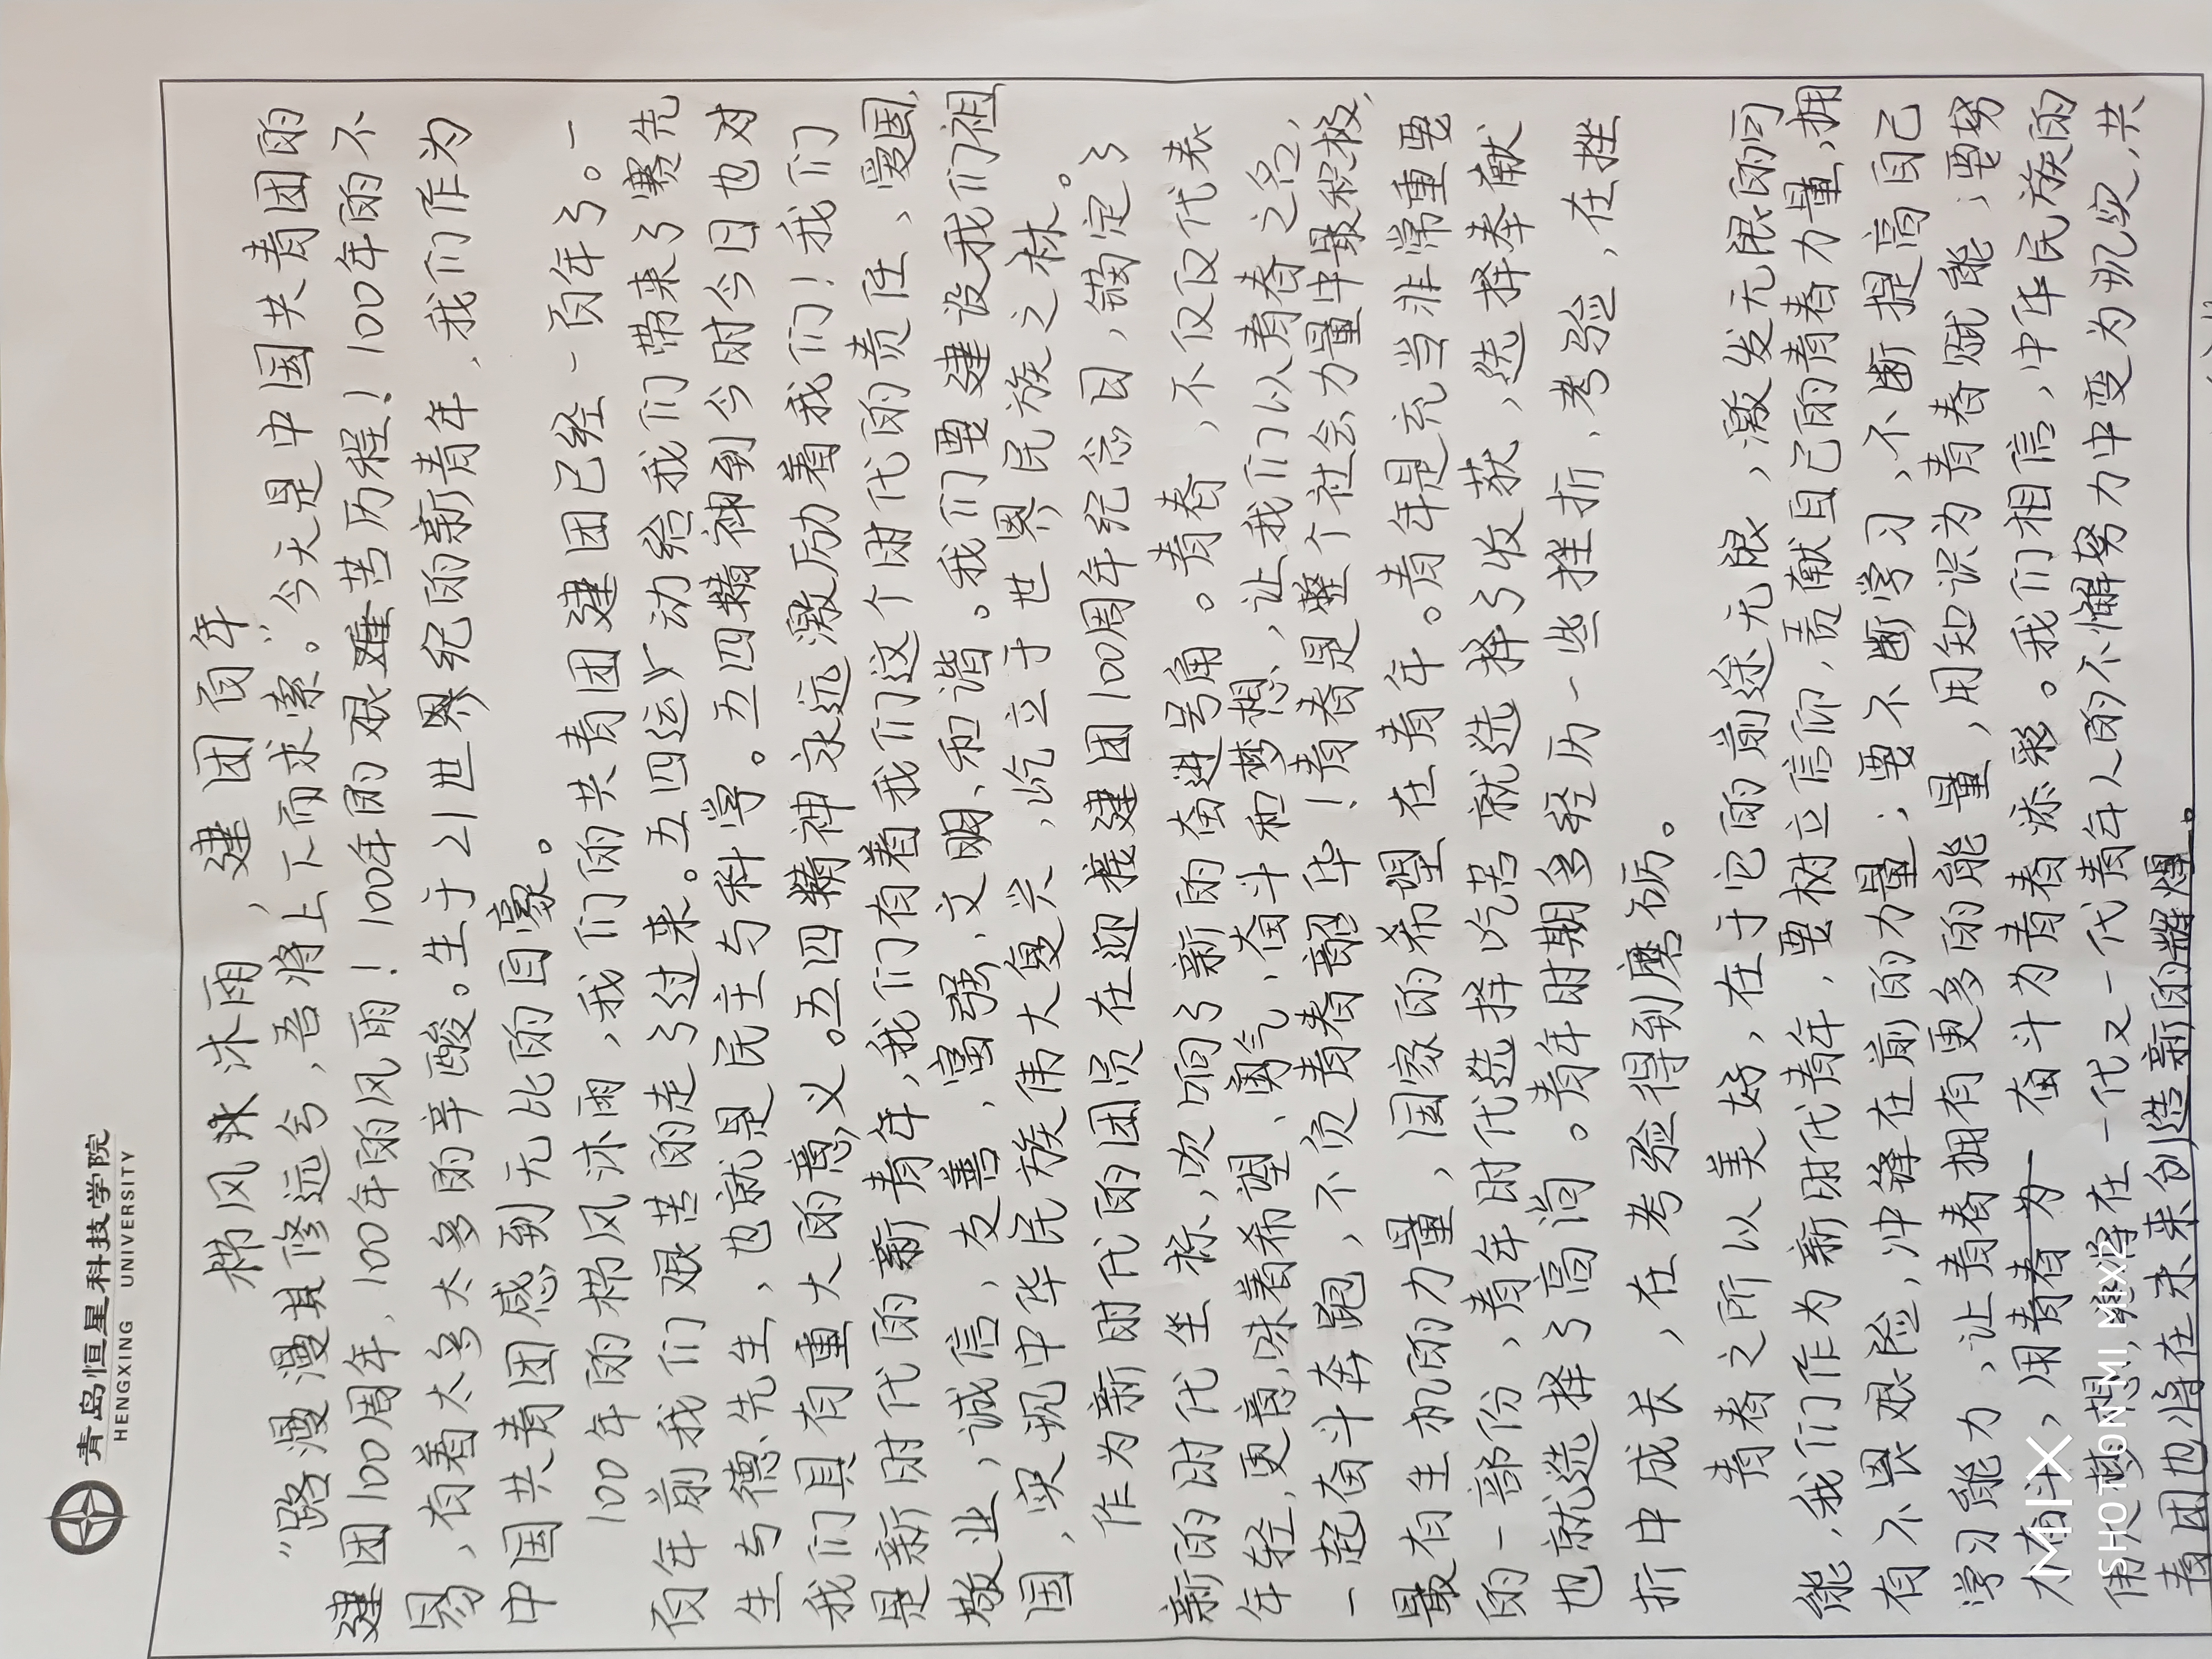 青岛恒星科技学院
HENGXING UNIVERSITY
栉风沐雨,建团百年
"路漫漫其修远兮,吾将上下而求索。"今天是中国共青团的
建团100周年,100年的风雨!100年的艰难苦历程!100年的不
易,有着太多太多的辛酸。生于21世界纪的新青年,我们作为
中国共青团感到无比的自豪。
100年的栉风沐雨,我们的共青团建团已经一百年了。一
百年前我们艰苦的走了过来。五四运动给我们带来了赛先
生与德先生,也就是民主与科学。五四精神到今时今日也对
我们具有重大的意义。五四精神永远激励着我们!我们
是新时代的新青年,我们有着我们这个时代的责任、爱国,
敬业,诚信,友善,富强、文明、和谐。我们要建设我们祖
国,实现中华民族伟大复兴,屹立于世界民族之林。
作为新时代的团员在迎接建团100周年纪念日,锚定了
新的时代坐标,吹响了新的奋进号角。青春,不仅仅代表
年轻,更意味着希望、勇气,奋斗和梦想,让我们以青春之名,
一起奋斗奔跑,不负青春韶华!青春是整个社会力量中最积极,
最有生机的力量,国家的希望在青年。青年是充当非常重要
的一部份,青年时代选择吃苦就选择了收获,选择奉献
也就选择了高尚。青年时期多经历一些挫折,考验,在挫
折中成长,在考验得到磨砺。
青春之所以美好,在于它的前途无限,激发无限的可
能,我们作为新时代青年,要树立信仰,贡献自己的青春力量,拥
有不畏艰险,冲锋在前的力量;要不断学习,不断提高自己
学习能力,让青春拥有更多的能量,用知识为青春赋能;要努
力奋斗,用青春为 奋斗为青春添彩。我们相信,中华民族的
伟大梦想,终将在一代又一代青年人的不懈努力中变为现实,共
青团也将在未来创造新的辉煌。
MI MIX
SHOT ON MI MIX2